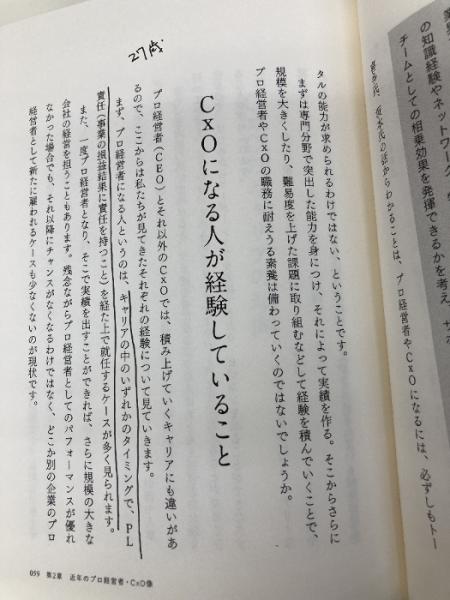 業界
の知識経験やネットワーク
チームとしての相乗効果を発揮できるかを考え、サポ
喜多氏、
の話からわかることは、プロ経営者やCxOになるには、必ずしもトー
タルの能力が求められるわけではない、ということです。
まずは専門分野で突出した能力を身につけ、それによって実績を作る。そこからさらに
規模を大きくしたり、難易度を上げた課題に取り組むなどして経験を積んでいくことで、
プロ経営者やCxOの職務に耐えうる素養は備わっていくのではないでしょうか。
CxOになる人が経験していること
27歳
プロ経営者(CEO)とそれ以外のCxOでは、積み上げていくキャリアにも違いがあ
るので、ここからは私たちが見てきたそれぞれの経験について見ていきます。
まず、プロ経営者になる人というのは、キャリアの中のいずれかのタイミングで、PL
責任(事業の損益結果に責任を持つこと)を経た上で就任するケースが多く見られます。
また、一度プロ経営者となり、そこで実績を出すことができれば、さらに規模の大きな
会社の経営を担うこともあります。残念ながらプロ経営者としてのパフォーマンスが優れ
なかった場合でも、それ以降にチャンスがなくなるわけではなく、どこか別の企業のプロ
経営者として新たに雇われるケースも少なくないのが現状です。
059 第2章 近年のプロ経営者・CxO像